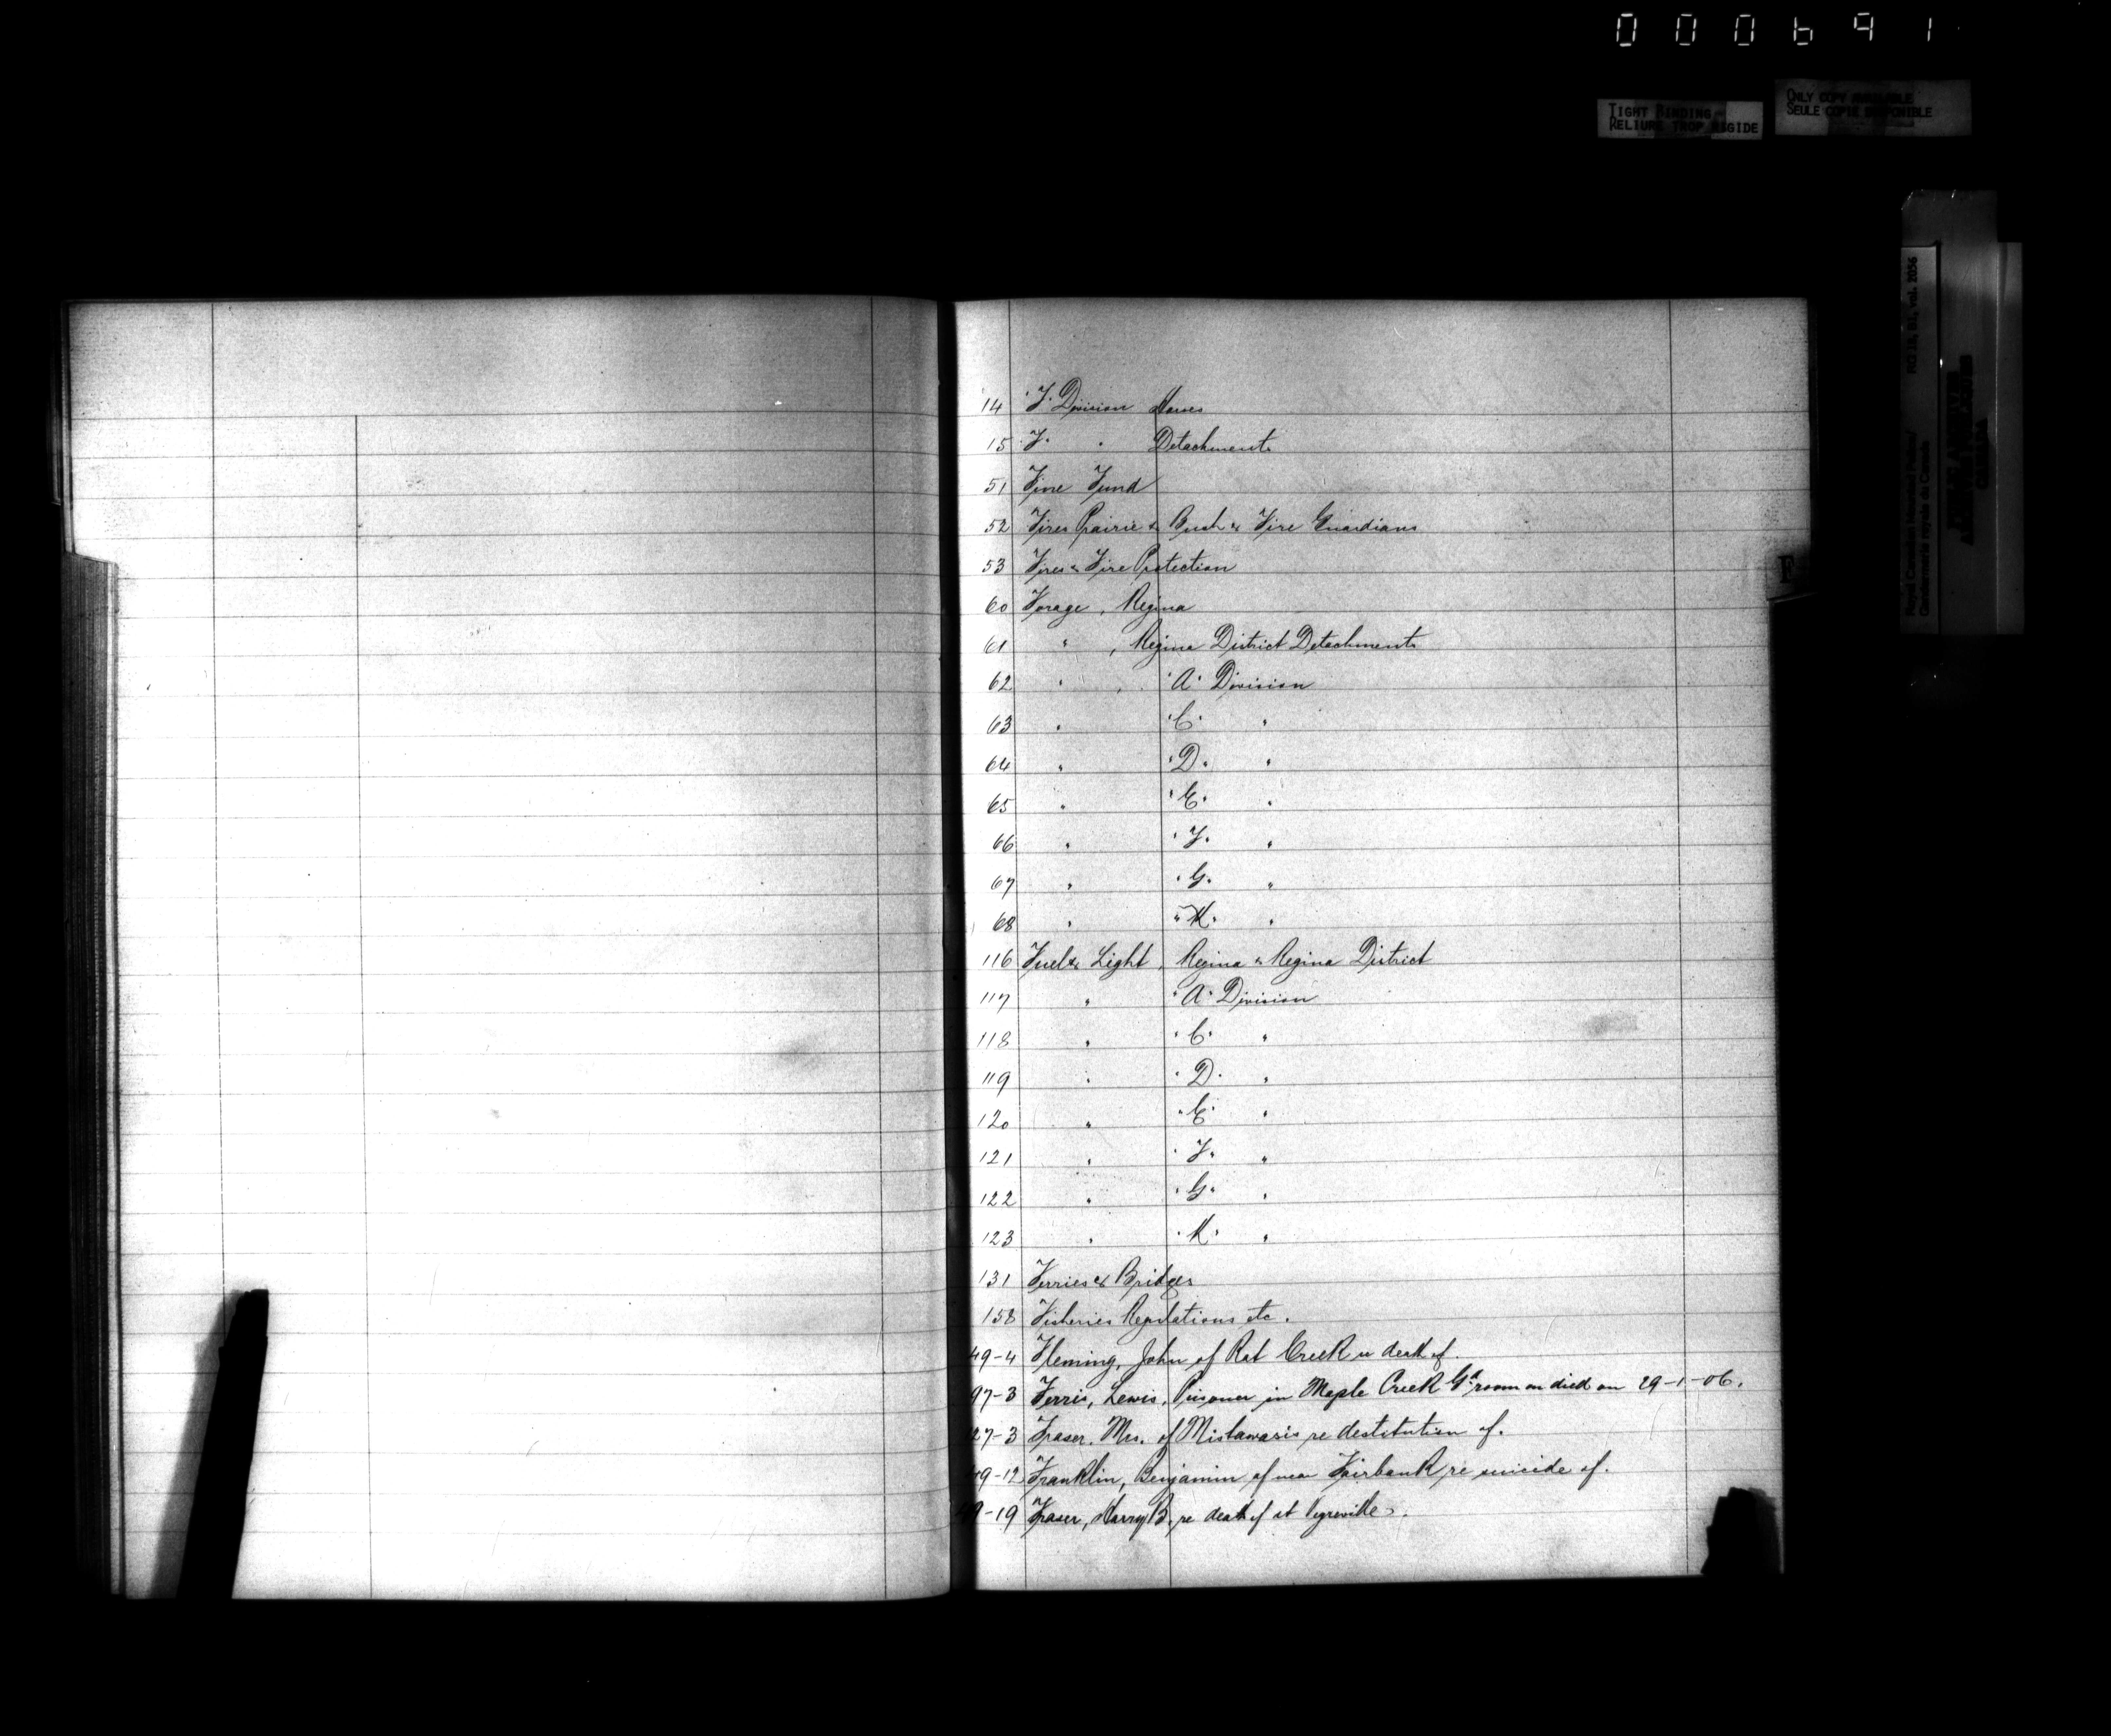 000691
TIGHT BINDING
RELIURE TROP RIGIDE
ONLY COPY AVAILABLE
SEULE COPIE DISPONIBLE
Royal Canadian Mounted Police/
Gendarmerie royale du Canada
RG 18, B1, vol. 2056
CANADA
F
14 "F" Division Horses
15 "F" " Detachments
51 Fine Fund
52 Fires Prairie & Bush & Fire Guardians
53 Fires & Fire Protection
60 Forage, Regina
61 " , Regina District Detachments
62 " , "A" Division
63 " "C" "
64 " "D" "
65 " "E" "
66 " "F" "
67 " "G" "
68 " "K" "
116 Fuel & Light, Regina & Regina District
117 " "A" Division
118 " "C" "
119 " "D" "
120 " "E" "
121 " "F" "
122 " "G" "
123 " "K" "
131 Ferries & Bridges
158 Fisheries Regulations etc.
49-4 Fleming, John of Rat Creek re death of.
97-3 Ferris, Lewis. Prisoner in Maple Creek Gd. room died on 29-1-06.
27-3 Fraser, Mrs. of Mistawasis re destitution of.
49-12 Franklin, Benjamin of near Fairbank re suicide of.
-19 Fraser, Harry B. re death of at Vegreville.